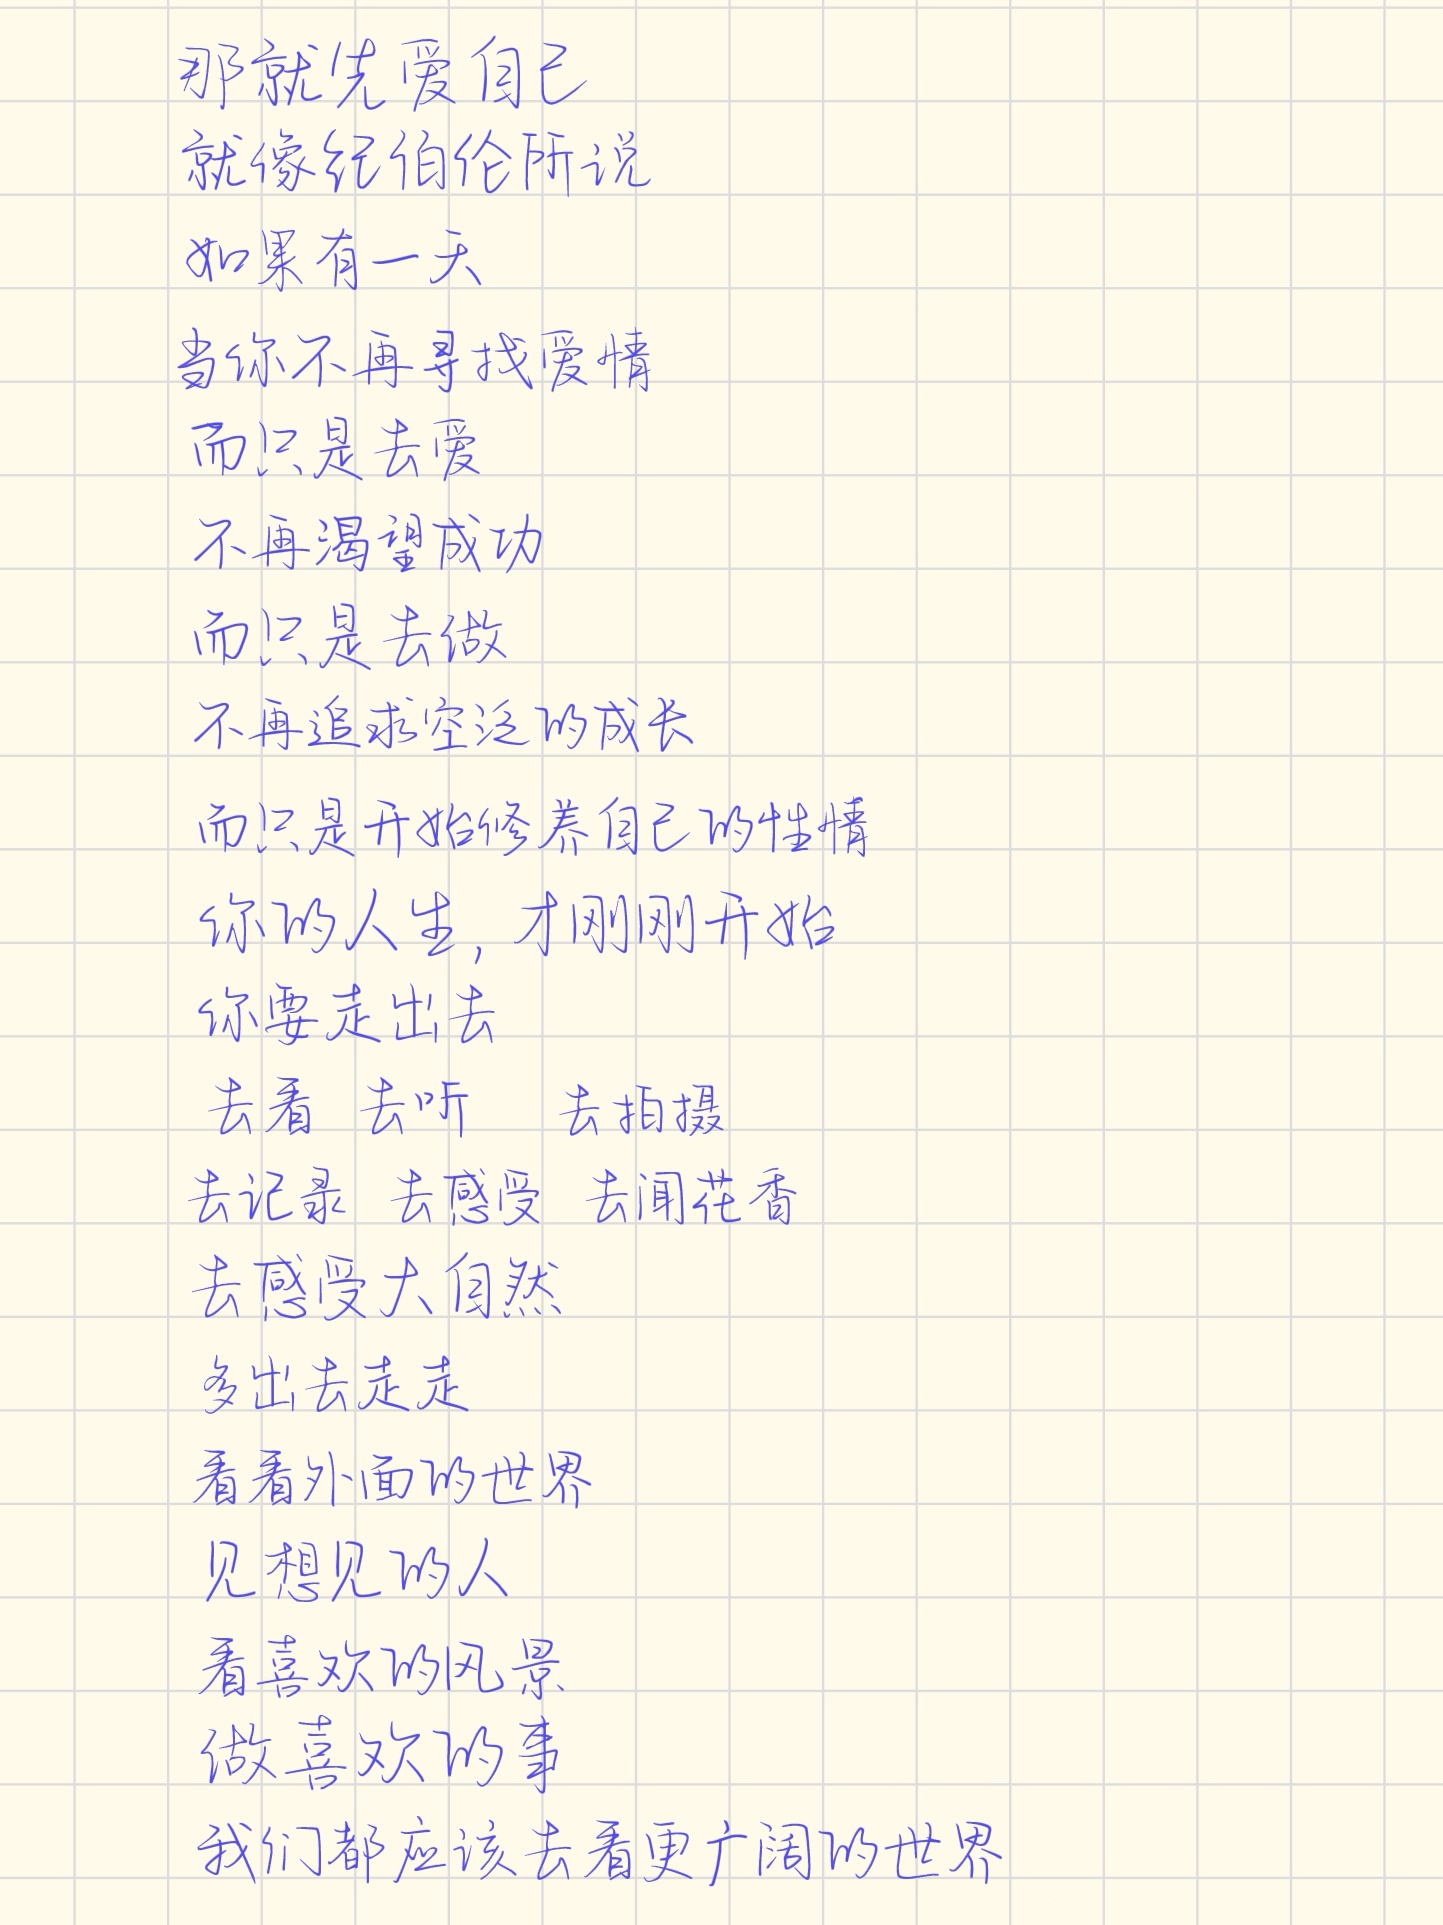 那就先爱自己
就像纪伯伦所说
如果有一天
当你不再寻找爱情
而只是去爱
不再渴望成功
而只是去做
不再追求空泛的成长
而只是开始修养自己的性情
你的人生,才刚刚开始
你要走出去
去看 去听 去拍摄
去记录 去感受 去闻花香
去感受大自然
多出去走走
看看外面的世界
见想见的人
看喜欢的风景
做喜欢的事
我们都应该去看更广阔的世界